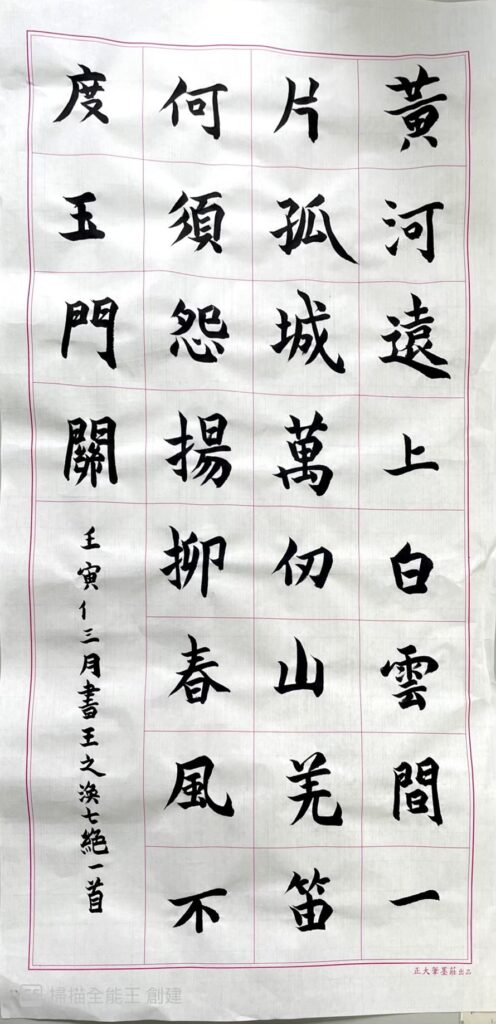 黃河遠上白雲間一
片孤城萬仞山羌笛
何須怨揚柳春風不
度玉門關
壬寅三月書王之渙七絕一首
正大筆墨莊出品
CS 掃描全能王 創建